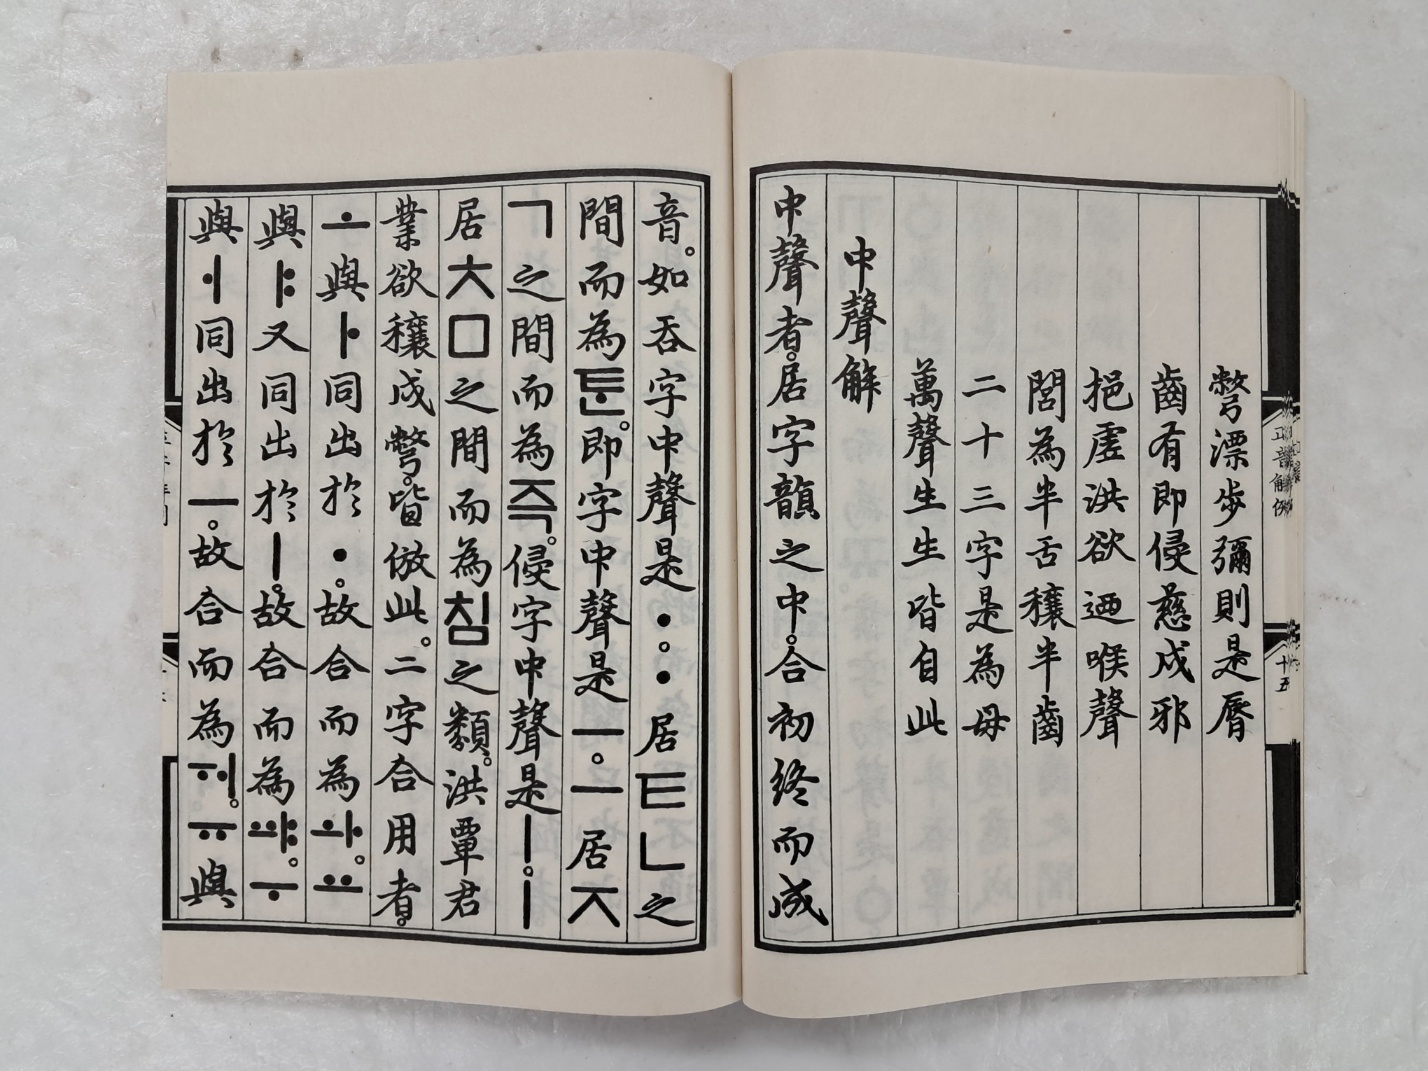 正音解例
十五
彆漂步彌則是脣
齒有即侵慈戌邪
挹虛洪欲迺喉聲
閭為半舌穰半齒
二十三字是為母
萬聲生生皆自此
中聲解
中聲者。居字韻之中。合初終而成
音。如吞字中聲是ㆍ。ㆍ居ㅌㄴ之
間而為ᄐᆞᆫ。即字中聲是ㅡ。ㅡ居ㅈ
ㄱ之間而為즉。侵字中聲是ㅣ。ㅣ
居ㅊㅁ之間而為침之類。洪覃君
業欲穰戌彆。皆倣此。二字合用者。
ㅗ與ㅏ同出於ㆍ。故合而為ㅘ。ㅛ
與ㅑ又同出於ㅣ。故合而為ㆇ。ㅜ
與ㅓ同出於ㅡ。故合而為ㅝ。ㅠ與